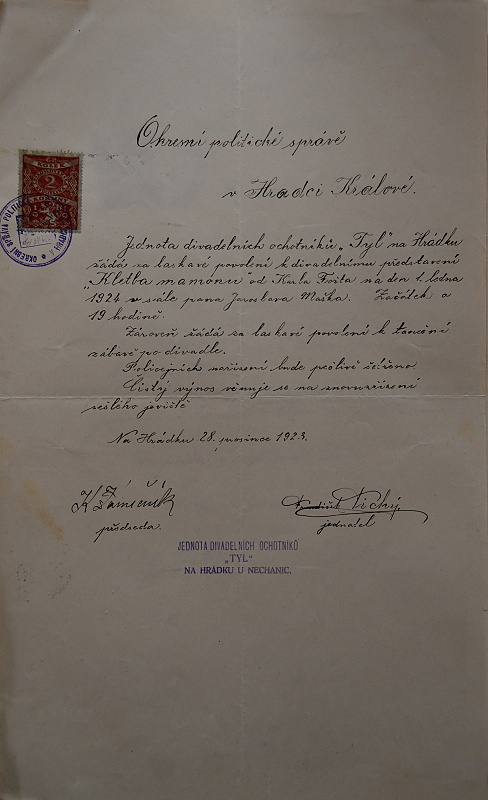 Okresní politické správě
v Hradci Králové.
KOLEK
2
Jednota divadelních ochotníků „Tyl" na Hrádku
žádá za laskavé povolení k divadelnímu představení
„Kletba mamonu" od Karla Fořta na den 1. ledna
1924 v sále pana Jaroslava Maška. Začátek o
19 hodině.
Zároveň žádá za laskavé povolení k taneční
zábavě po divadle.
Policejních nařízení bude pečlivě šetřeno
Čistý výnos věnuje se na znovuzřízení
sešlého jeviště
Na Hrádku 28. prosince 1923.
předseda.
Tichý
jednatel
JEDNOTA DIVADELNÍCH OCHOTNÍKŮ
„TYL"
NA HRÁDKU U NECHANIC.